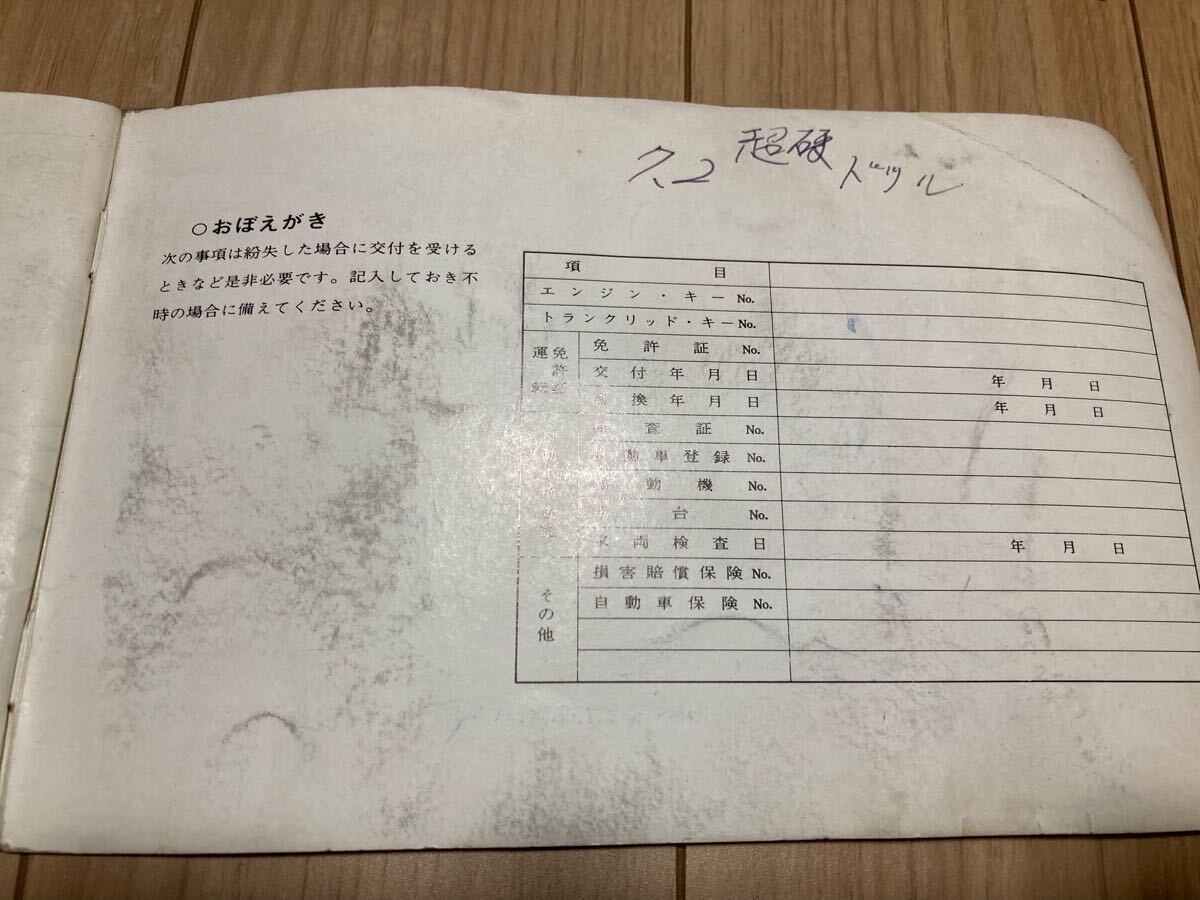 超硬
7.2 ドツル
○おぼえがき
次の事項は紛失した場合に交付を受ける
ときなど是非必要です。記入しておき不
時の場合に備えてください。
項 目
エンジン・キー No.
トランクリッド・キー No.
運転免許証
免許証 No.
交付年月日 年 月 日
換年月日 年 月 日
査証 No.
動車登録 No.
動機 No.
台 No.
車両検査日 年 月 日
その他
損害賠償保険 No.
自動車保険 No.